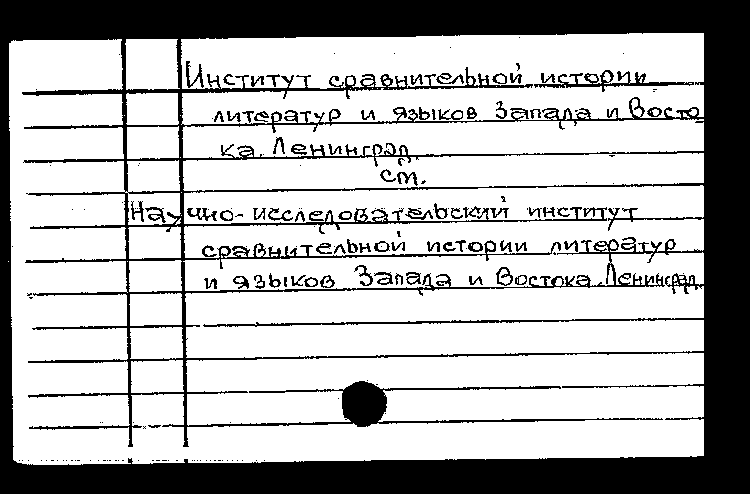 Институт сравнительной истории
литератур и языков Запада и Восто
ка. Ленинград.
см.
Научно-исследовательский институт
сравнительной истории литератур
и языков Запада и Востока. Ленинград.